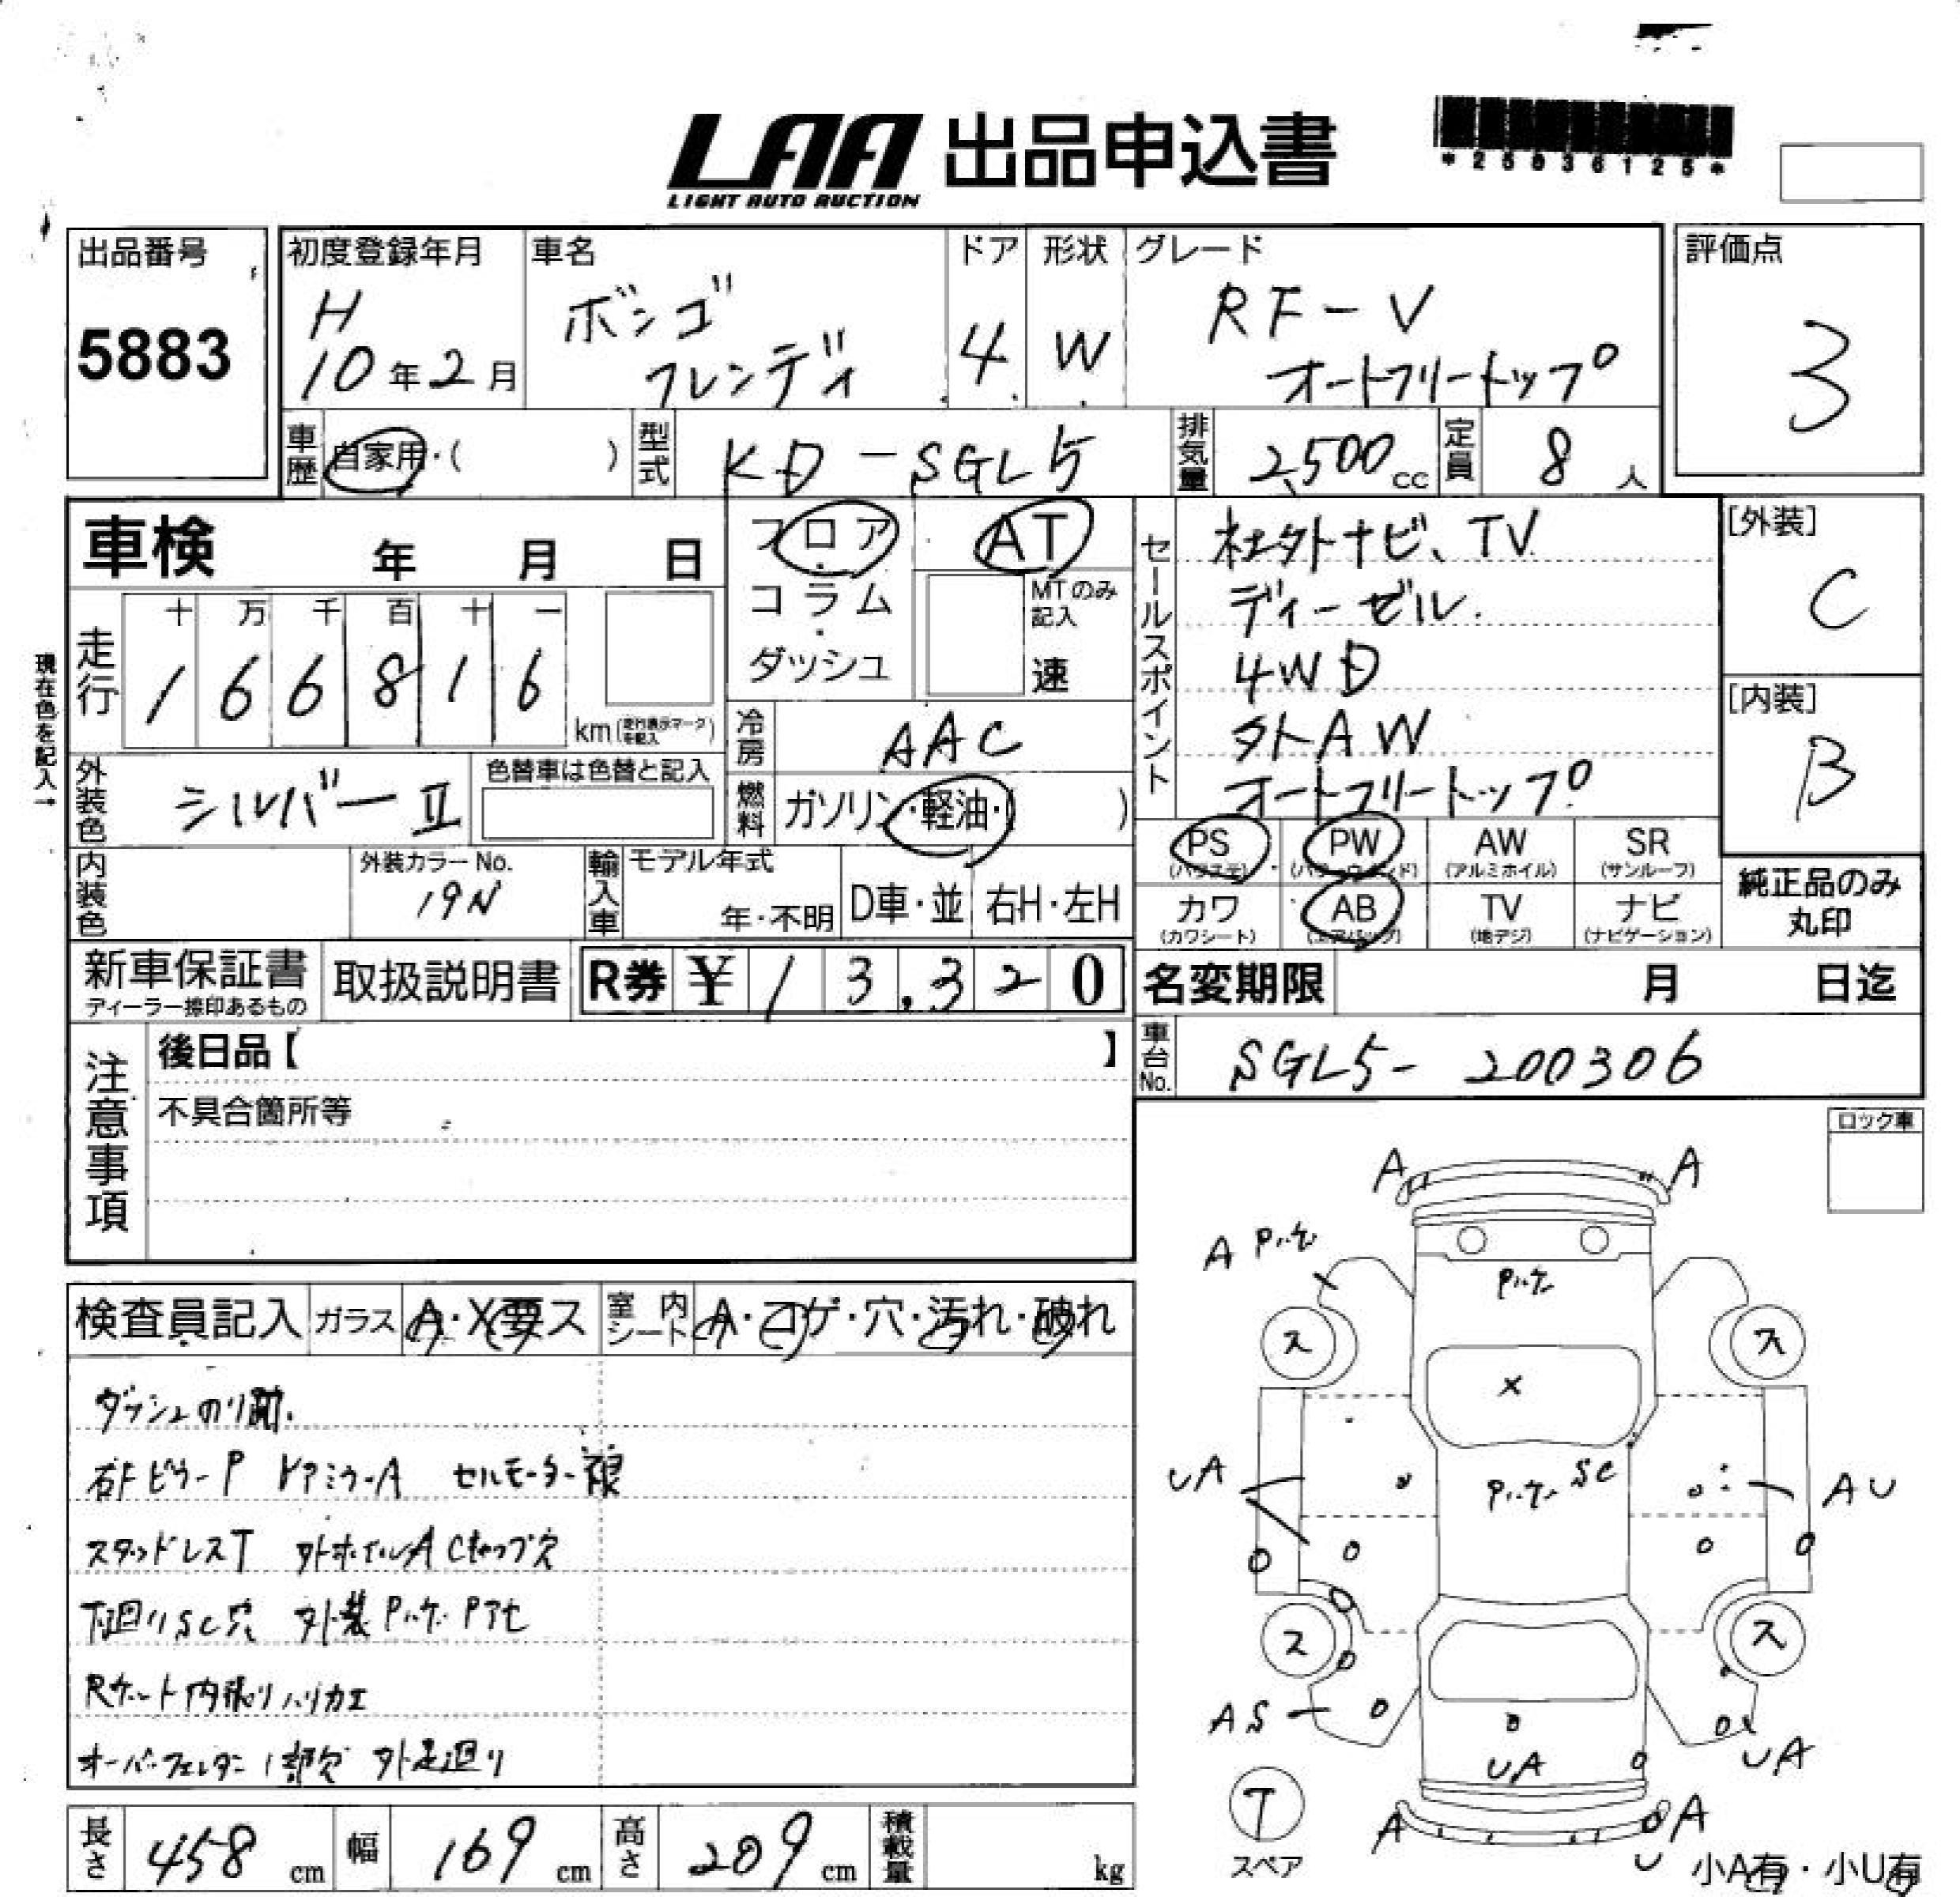 LAA 出品申込書
LIGHT AUTO AUCTION
*25036125*
出品番号
5883
初度登録年月
H
10年2月
車名
ボンゴ
フレンディ
ドア
4
形状
W
グレード
RF-V
オートフリートップ
評価点
3
車歴
自家用・( )
型式
KD-SGL5
排気量
2,500cc
定員
8人
車検 年 月 日
フロア
・
コラム
・
ダッシュ
AT
MTのみ
記入
速
セールスポイント
社外ナビ、TV
ディーゼル.
4WD
外AW
オートフリートップ
[外装]
C
[内装]
B
現在色を記入→
走行
十 万 千 百 十 一
1 6 6 8 1 6
km(走行表示マークを記入)
冷房
AAC
外装色
シルバーⅡ
色替車は色替と記入
燃料
ガソリン・軽油・( )
内装色
外装カラーNo.
19N
輸入車
モデル年式
年・不明
D車・並
右H・左H
PS
(パワステ)
PW
(パワーウィンド)
AW
(アルミホイル)
SR
(サンルーフ)
カワ
(カワシート)
AB
(エアバッグ)
TV
(地デジ)
ナビ
(ナビゲーション)
純正品のみ
丸印
新車保証書
ディーラー捺印あるもの
取扱説明書
R券 ¥ 1 3,3 2 0
名変期限 月 日迄
車台No.
SGL5-200306
注意事項
後日品【 】
不具合箇所等
ロック車
検査員記入
ガラス
A・X要ス
室内シート
A・コゲ・穴・汚れ・破れ
ダッシュのり跡.
右FピラーP ドアミラーA セルモーター
スタッドレスT 外ホイルA Cキャップ欠
下廻りSC穴 外装Pハゲ Pアセ
Rゲート内張りハリカエ
オーバーフェンダー1部欠 外足廻り
A A
A Pハゲ
Pハゲ
ス ス
X
UA
Pハゲ SC
AU
ス ス
AS
UA
UA
T
スペア
A A
U
小A有・小U有
長さ
458cm
幅
169cm
高さ
209cm
積載量
kg